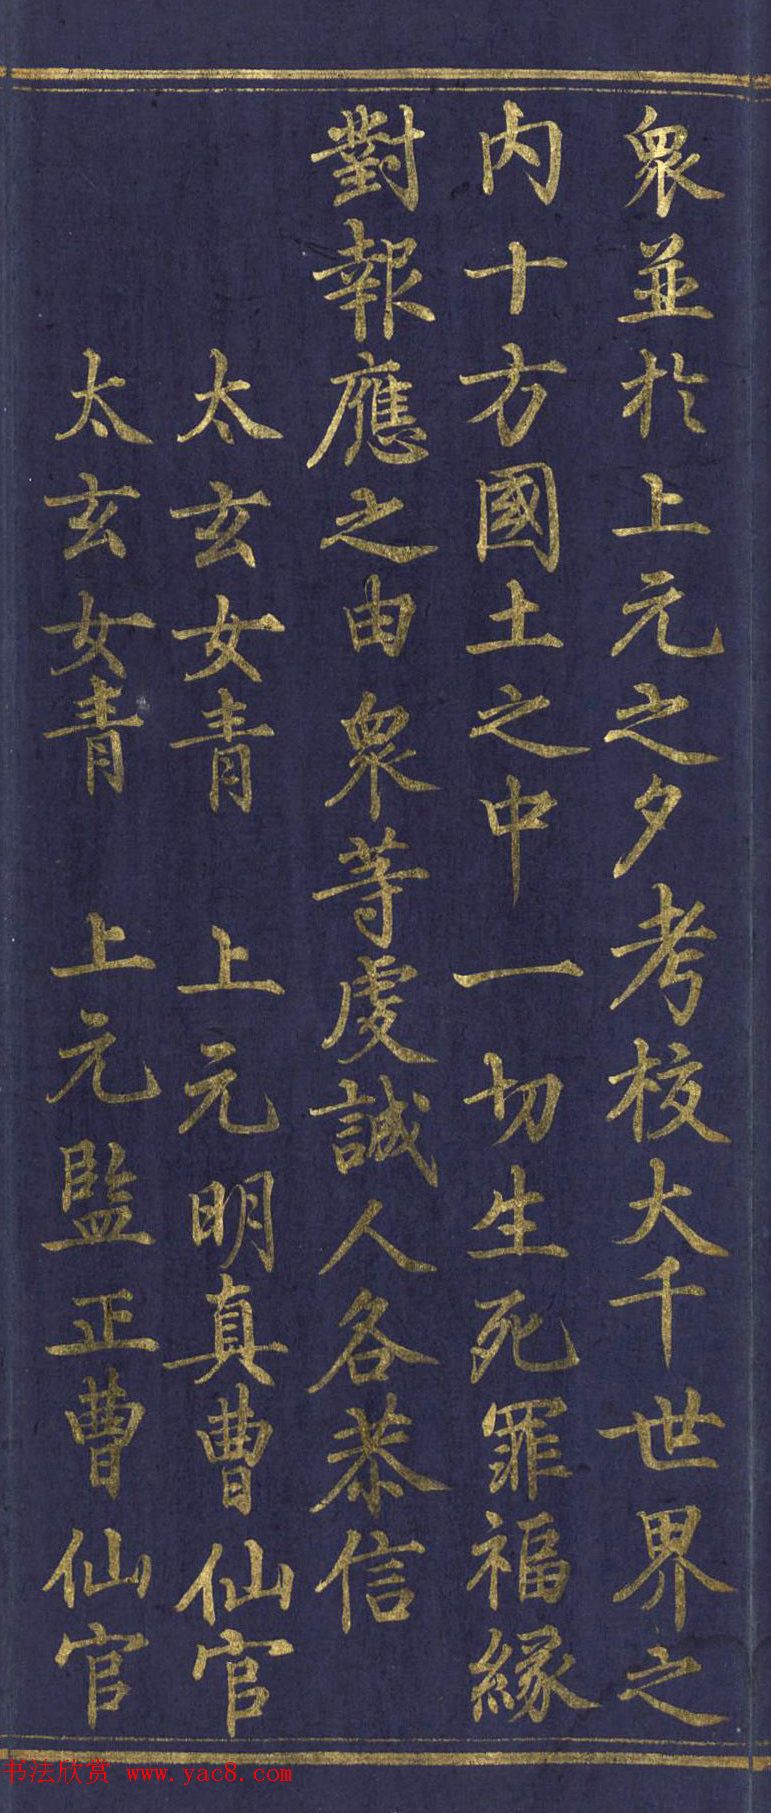 衆並於上元之夕考校大千世界之
内十方國土之中一切生死罪福縁
對報應之由衆等虔誠人各恭信
太玄女青 上元明真曹仙官
太玄女青 上元監正曹仙官
书法欣赏 www.yac8.com